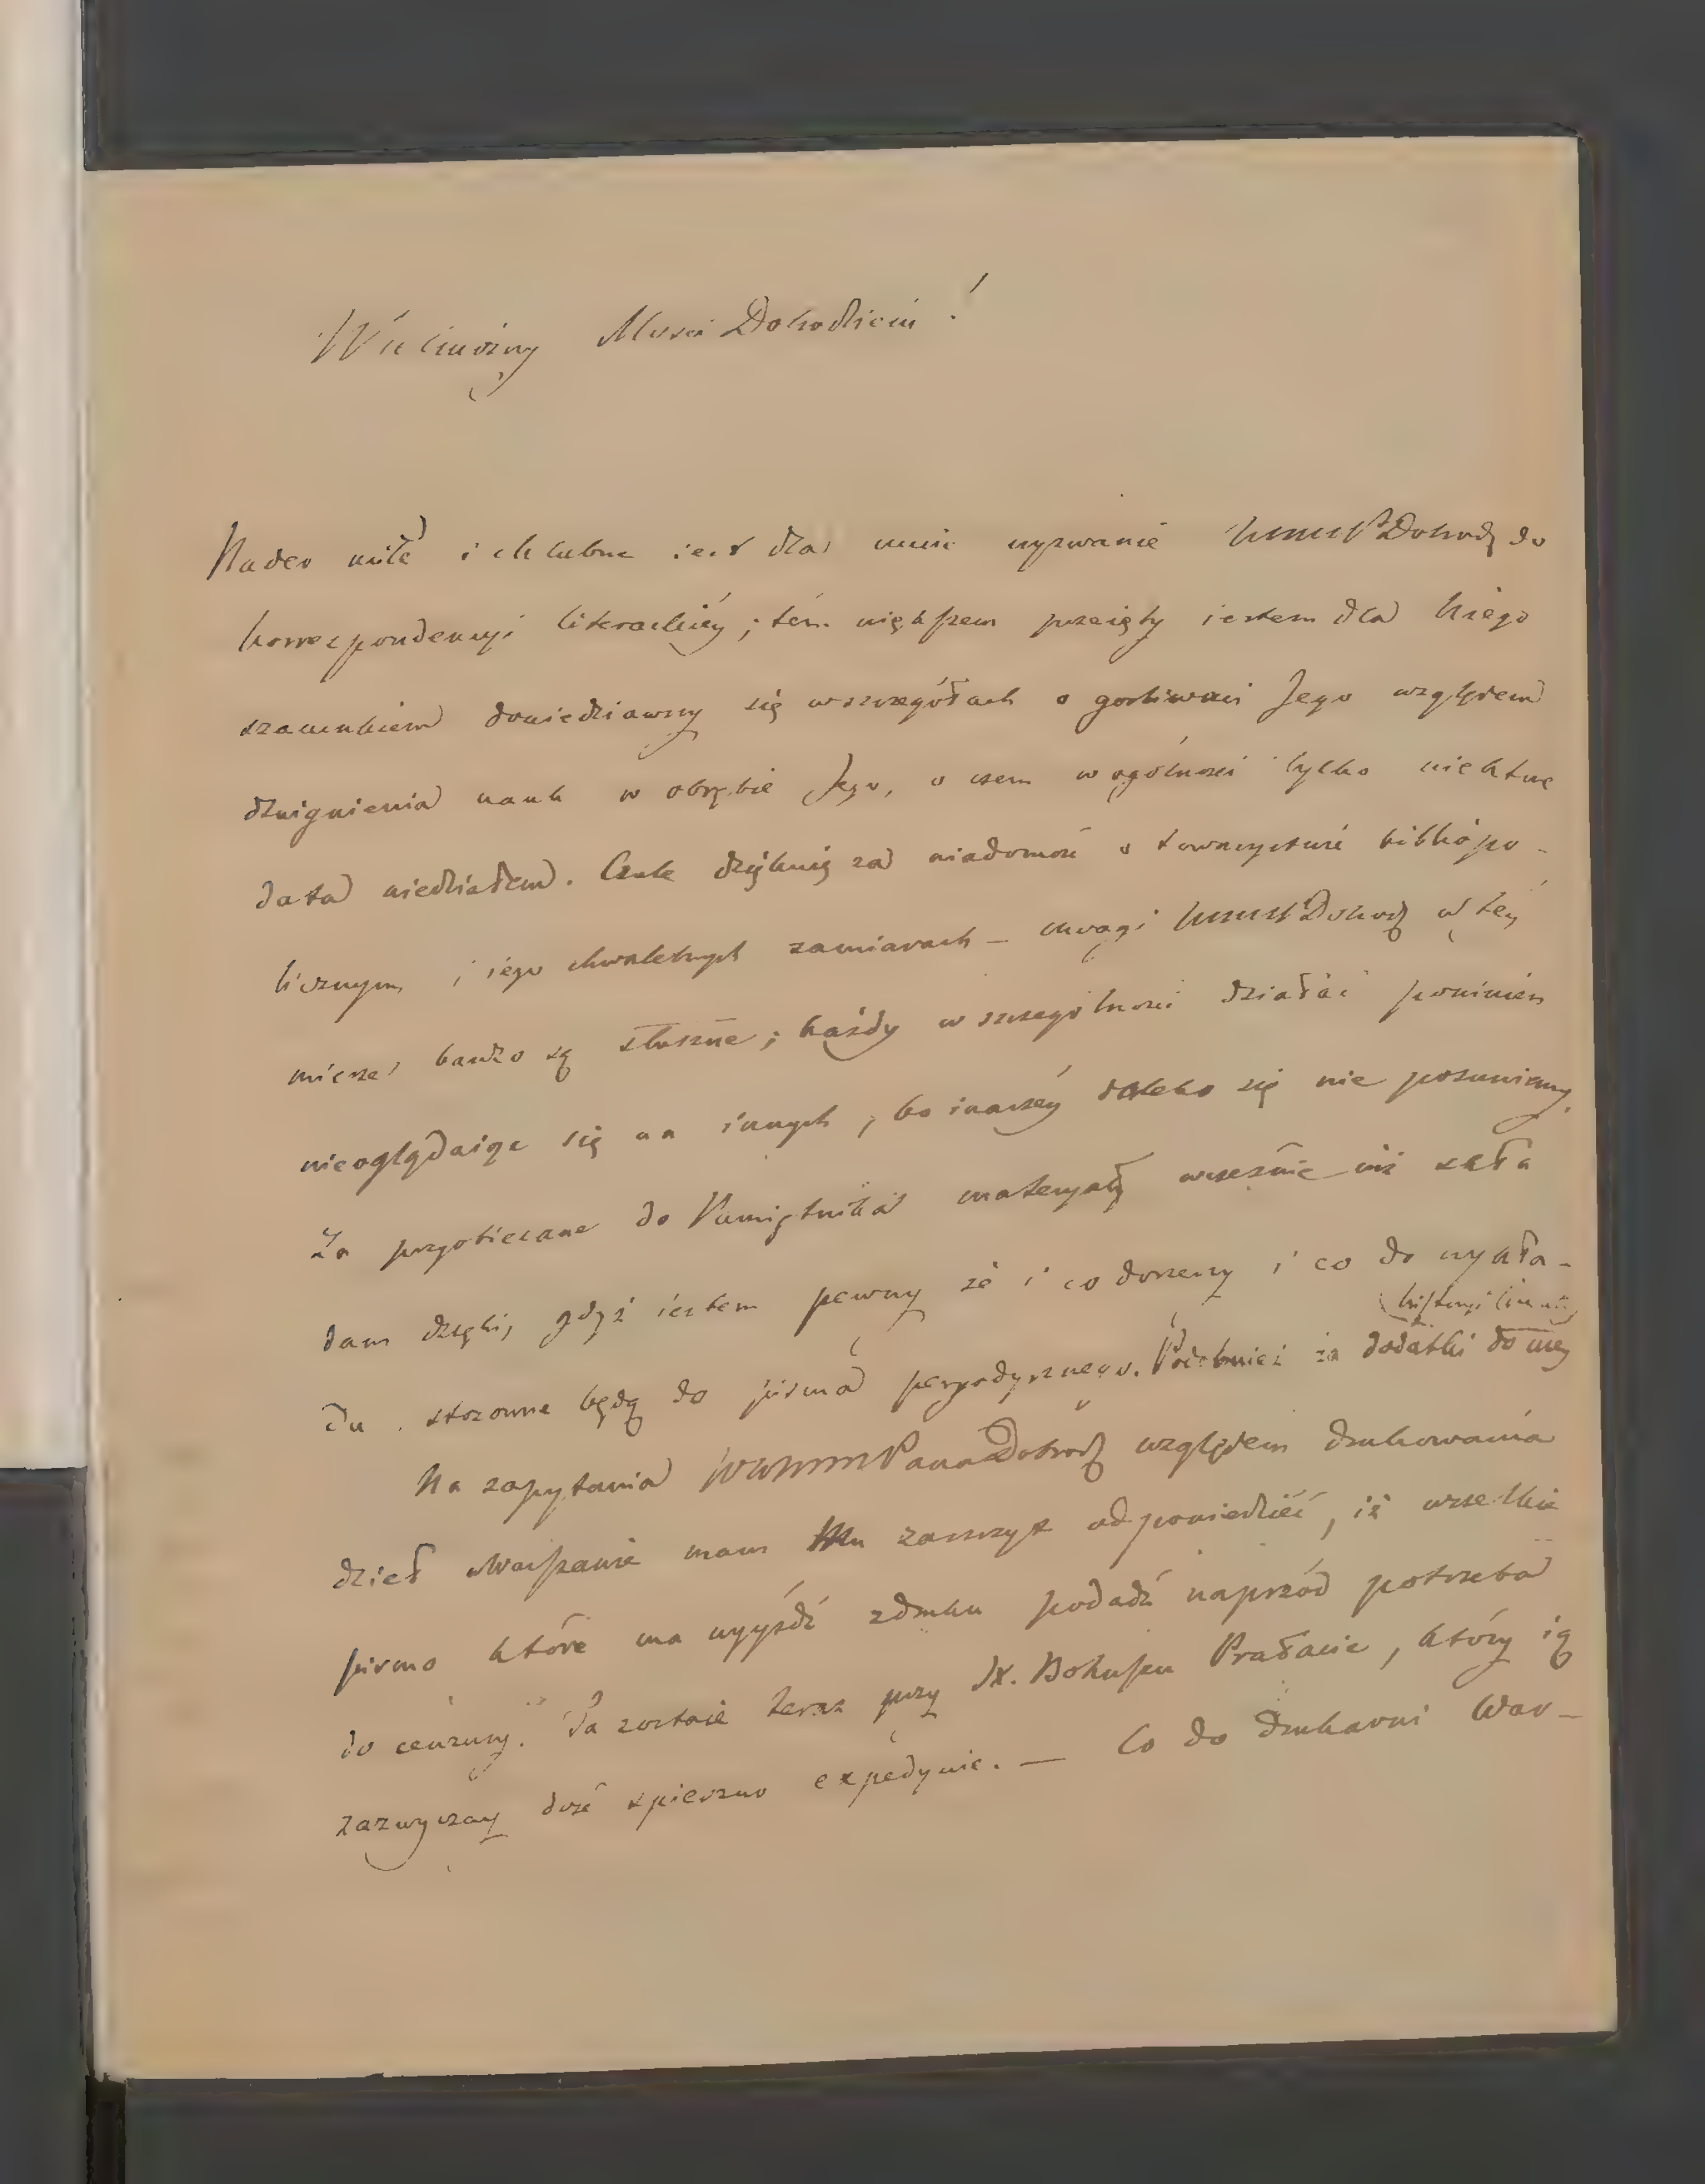 Wielmożny Mości Dobrodzieiu!
Nader miłe i chlubne iest dla mnie wyzwanie WMMPDobrodz do
korrespondencyi literackiéy; tém większem przeięty iestem dla Niego
szacunkiem dowiedziawszy się w szczegółach o gorliwości Jego względem
dźwignienia nauk w obrębie Jego, o czem w ogólności tylko niektóre
data wiedziałem. Czule dziękuię za wiadomość o towarzystwie bibliopo-
licznym i iego chwalebnych zamiarach – uwagi WMMPDobrodz w téy
mierze bardzo są słuszne; każdy w szczególności działać powinien
nieoglądaiąc się na innych, bo inaczéy daleko się nie posuniemy.
Za przyobiecane do Pamiętnika materyały wcześnie iuż skła-
dam dzięki, gdyż iestem pewny że i co do rzeczy i co do wykła-
du stosowne będą do pisma peryodycznego. Podobnież za dodatki do méy
Na zapytania WWMMPana Dobrodz względem drukowania
dzieł w Warszawie mam zaszczyt odpowiedzieć, iż wszelkie
pismo które ma wyyśdź z druku podadź naprzód potrzeba
do cenzury. Ta zostaie teraz przy JX. Bohuszu Prałacie, który ią
zazwyczay dość spieszno expedyuie. — Co do drukarni War-